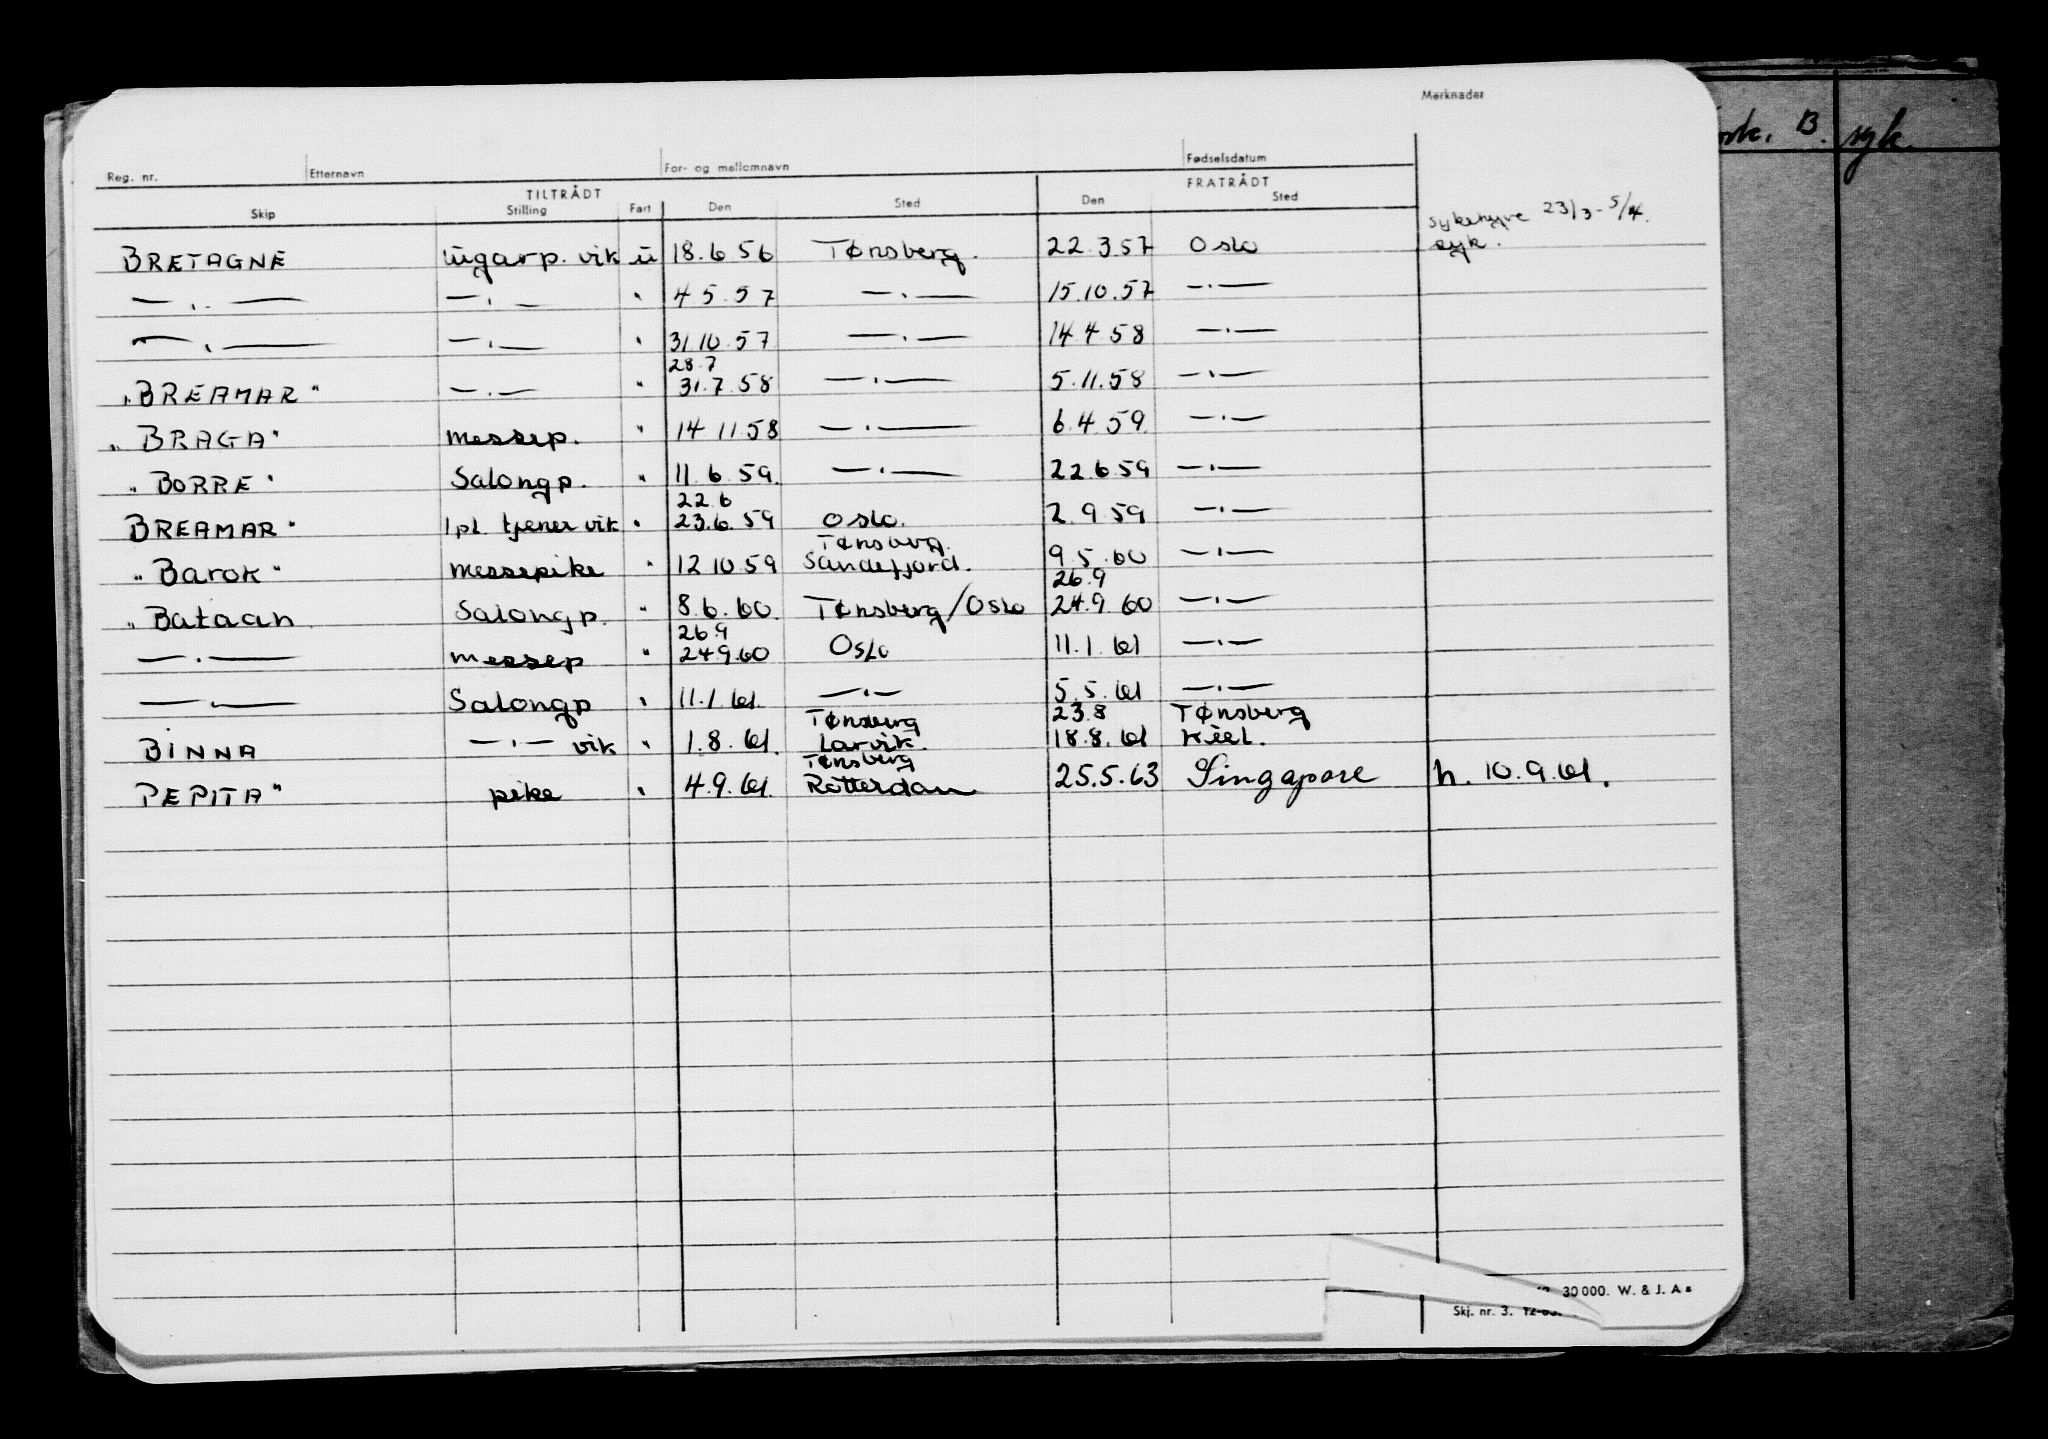 Merknader
Reg. nr. Etternavn For- og mellomnavn Fødselsdatum
TILTRÅDT FRATRÅDT
Skip Stilling Fart Den Sted Den Sted
Sykehyre 23/3-5/4.
BRETAGNE lugarp. vik u 18.6 56 Tønsberg. 22.3.57 Oslo syk.
—„— —„— " 4 5.57 —„— 15.10.57 —„—
—„— —„— " 31.10.57 —„— 14 4 58 —„—
28.7
"BREAMAR" —„— " 31.7.58 —„— 5.11.58 —„—
"BRAGA" messep. " 14 11 58 —„— 6.4.59. —„—
"BORRE" Salongp. " 11.6.59. —„— 22.6.59 —„—
22.6
BREAMAR" 1pl. tjener vik " 23.6.59 Oslo. 2.9 59 —„—
Tønsberg.
"Barok" messepike " 12 10 59 Sandefjord. 9.5.60 —„—
26.9
"Bataan Salongp. " 8.6.60. Tønsberg/Oslo 24.9.60 —„—
26.9
—„— messep " 24.9.60 Oslo 11.1.61 —„—
—„— Salongp " 11.1.61. —„— 5.5.61 —„—
Tønsberg 23.8 Tønsberg
BINNA —„— vik " 1.8.61. Larvik. 18.8.61 Kiel.
Tønsberg
PEPITA" pike " 4.9.61. Rotterdam 25.5.63 Singapore h. 10.9.61.
30 000. W. & J. A s
Skj. nr. 3. 12-
B. syk.